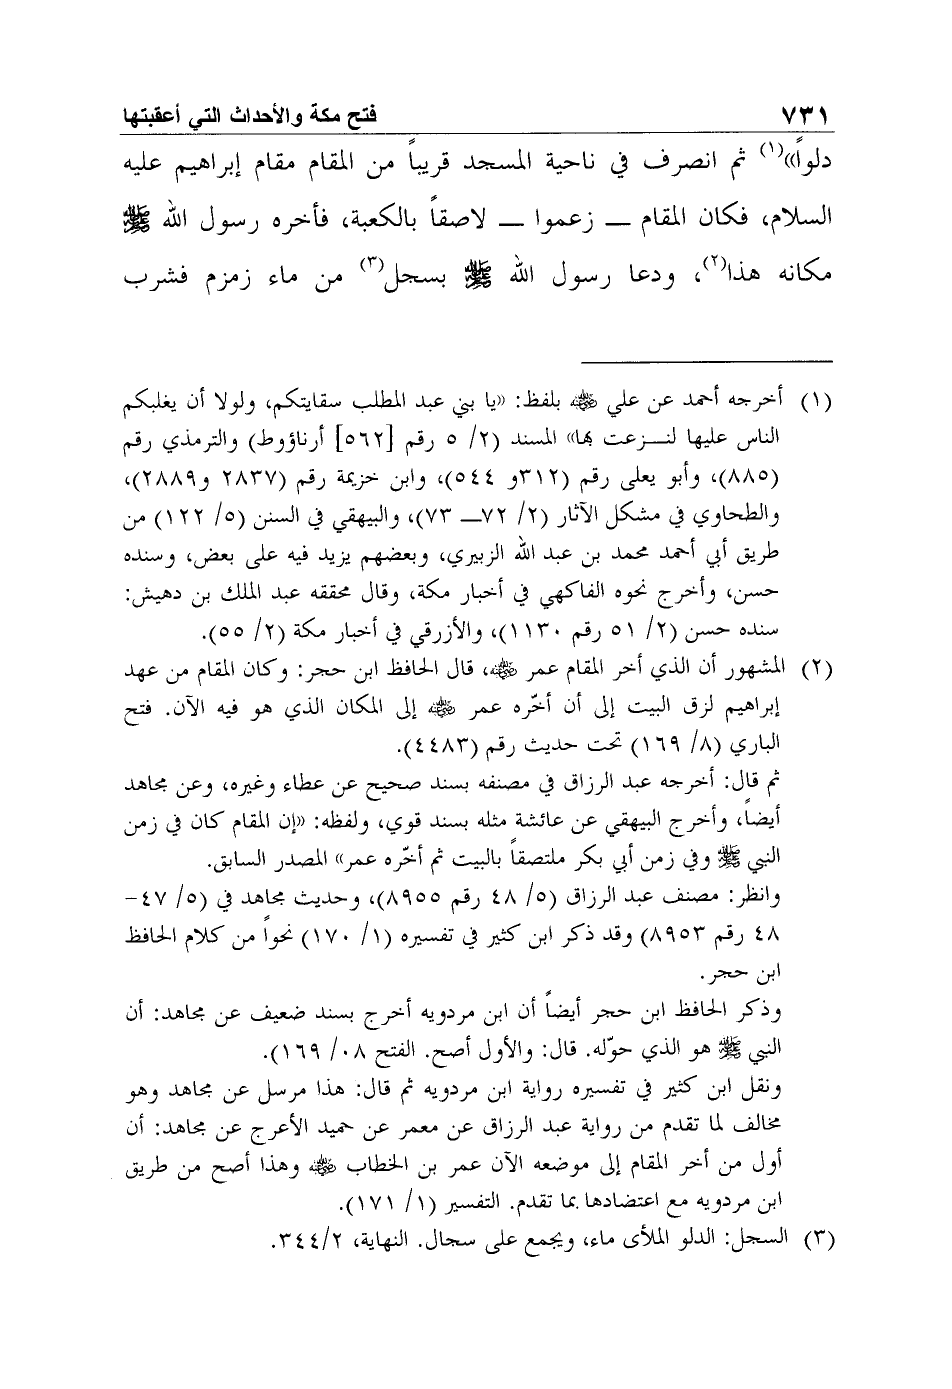 ٧٣١ فتح مكة والأحداث التي أعقبتها
دلواً»(١) ثم انصرف في ناحية المسجد قريباً من المقام مقام إبراهيم عليه
السلام، فكان المقام ــ زعموا ــ لاصقاً بالكعبة، فأخره رسول الله ﷺ
مكانه هذا(٢)، ودعا رسول الله ﷺ بسجل(٣) من ماء زمزم فشرب
(١) أخرجه أحمد عن علي ﵁ بلفظ: «يا بني عبد المطلب سقايتكم، ولولا أن يغلبكم
الناس عليها لنـزعت بها» المسند (٢/ ٥ رقم [٥٦٢] أرناؤوط) والترمذي رقم
(٨٨٥)، وأبو يعلى رقم (٣١٢و ٥٤٤)، وابن خزيمة رقم (٢٨٣٧ و٢٨٨٩)،
والطحاوي في مشكل الآثار (٢/ ٧٢ــ ٧٣)، والبيهقي في السنن (٥/ ١٢٢) من
طريق أبي أحمد محمد بن عبد الله الزبيري، وبعضهم يزيد فيه على بعض، وسنده
حسن، وأخرج نحوه الفاكهي في أخبار مكة، وقال محققه عبد الملك بن دهيش:
سنده حسن (٢/ ٥١ رقم ١١٣٠)، والأزرقي في أخبار مكة (٢/ ٥٥).
(٢) المشهور أن الذي أخر المقام عمر ﵁، قال الحافظ ابن حجر: وكان المقام من عهد
إبراهيم لزق البيت إلى أن أخّره عمر ﵁ إلى المكان الذي هو فيه الآن. فتح
الباري (٨/ ١٦٩) تحت حديث رقم (٤٤٨٣).
ثم قال: أخرجه عبد الرزاق في مصنفه بسند صحيح عن عطاء وغيره، وعن مجاهد
أيضاً، وأخرج البيهقي عن عائشة مثله بسند قوي، ولفظه: «إن المقام كان في زمن
النبي ﷺ وفي زمن أبي بكر ملتصقاً بالبيت ثم أخّره عمر» المصدر السابق.
وانظر: مصنف عبد الرزاق (٥/ ٤٨ رقم ٨٩٥٥)، وحديث مجاهد في (٥/ ٤٧-
٤٨ رقم ٨٩٥٣) وقد ذكر ابن كثير في تفسيره (١/ ١٧٠) نحواً من كلام الحافظ
ابن حجر.
وذكر الحافظ ابن حجر أيضاً أن ابن مردويه أخرج بسند ضعيف عن مجاهد: أن
النبي ﷺ هو الذي حوّله. قال: والأول أصح. الفتح ٠٨/ ١٦٩).
ونقل ابن كثير في تفسيره رواية ابن مردويه ثم قال: هذا مرسل عن مجاهد وهو
مخالف لما تقدم من رواية عبد الرزاق عن معمر عن حميد الأعرج عن مجاهد: أن
أول من أخر المقام إلى موضعه الآن عمر بن الخطاب ﵁ وهذا أصح من طريق
ابن مردويه مع اعتضادها بما تقدم. التفسير (١/ ١٧١).
(٣) السجل: الدلو الملأى ماء، ويجمع على سجال. النهاية، ٣٤٤/٢.